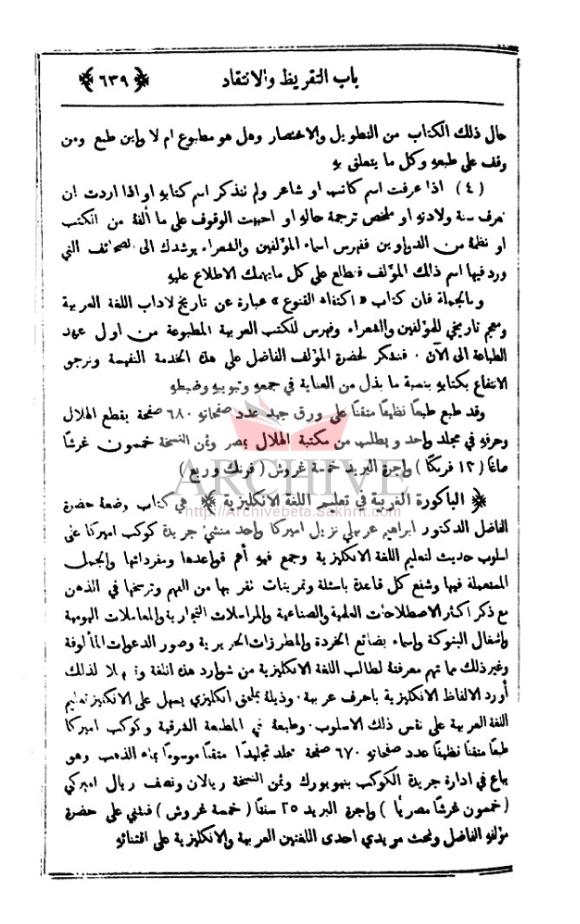 باب التقريظ والانتقاد
﴿ ٦٣٩ ﴾
حال ذلك الكتاب من التطويل والاختصار وهل هو مطبوع ام لا واين طبع ومن
وقف على طبعه وكل ما يتعلق به
(٤) اذا عرفت اسم كاتب او شاعر ولم تتذكر اسم كتابه او اذا اردت ان
تعرف سنة ولادته او ملخص ترجمة حاله او احببت الوقوف على ما ألفه من الكتب
او نظمه من الدواوين ففهرس اسماء المؤلفين والشعراء يرشدك الى الصحائف التي
ورد فيها اسم ذلك المؤلف فتطلع على كل ما يهمك الاطلاع عليه
وبالجملة فان كتاب « اكتفاء القنوع » عبارة عن تاريخ لاداب اللغة العربية
ومعجم تاريخي للمؤلفين والشعراء وفهرس للكتب العربية المطبوعة من اول عهد
الطباعة الى الآن . فنشكر لحضرة المؤلف الفاضل على هذه الخدمة النفيسة ونرجو
الانتفاع بكتابه بنسبة ما بذل من العناية في جمعه وتبويبه وضبطه
وقد طبع طبعًا نظيفًا متقنًا على ورق جيد عدد صفحاته ٦٨٠ صفحة بقطع الهلال
وحرفه في مجلد واحد ويطلب من مكتبة الهلال بمصر وثمن النسخة خمسون غرشًا
صاغًا (١٣ فرنكًا) واجرة البريد خمسة غروش (فرنك وربع)
﴿ الباكورة الغربية في تعليم اللغة الانكليزية ﴾ هي كتاب وضعه حضرة
الفاضل الدكتور ابراهيم عربيلي نزيل اميركا واحد منشئي جريدة كوكب اميركا على
اسلوب حديث لتعليم اللغة الانكليزية وجمع فيه أهم قواعدها ومفرداتها والجمل
المستعملة فيها وشفع كل قاعدة باسئلة وتمرينات تقربها من الفهم وترسخها في الذهن
مع ذكر أكثر الاصطلاحات العلمية والصناعية والمراسلات التجارية والمعاملات اليومية
واشغال البنوكة واسماء بضائع الخردة والمطرزات الحريرية وصور الدعوات المألوفة
وغير ذلك مما تهم معرفته لطالب اللغة الانكليزية من شوارد هذه اللغة لا لذلك
أورد الالفاظ الانكليزية باحرف عربية . وذيله بملحق انكليزي يسهل على الانكليز تعليم
اللغة العربية على نفس ذلك الاسلوب . وطبعه في المطبعة الشرقية وكوكب اميركا
طبعًا متقنًا نظيفًا عدد صفحاته ٦٧٠ صفحة مجلد تجليدًا متقنًا موسومًا بماء الذهب وهو
يباع في ادارة جريدة الكوكب بنيويورك وثمن النسخة ريالان ونصف ريال اميركي
(خمسون غرشًا مصريًا) واجرة البريد ٢٥ سنتًا (خمسة غروش) فنثني على حضرة
مؤلفه الفاضل ونحث مريدي احدى اللغتين العربية والانكليزية على اقتنائه
ARCHIVE
http://Archivebeta.Sakhrit.com